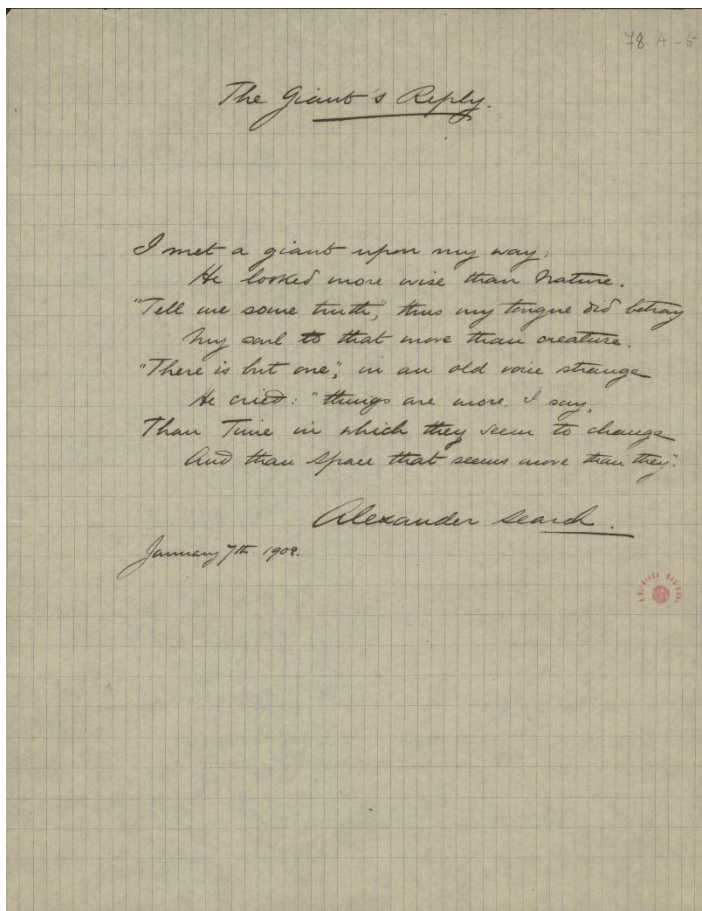 78 A-5
The Giant's Reply.
I met a giant upon my way;
He looked more wise than Nature.
"Tell me some truth", thus my tongue did betray
My soul to that more than creature.
"There is but one", in an old voice strange
He cried: "things are more, I say,
Than Time in which they seem to change
And than Space that seems more than they."
Alexander Search.
January 7th 1908.